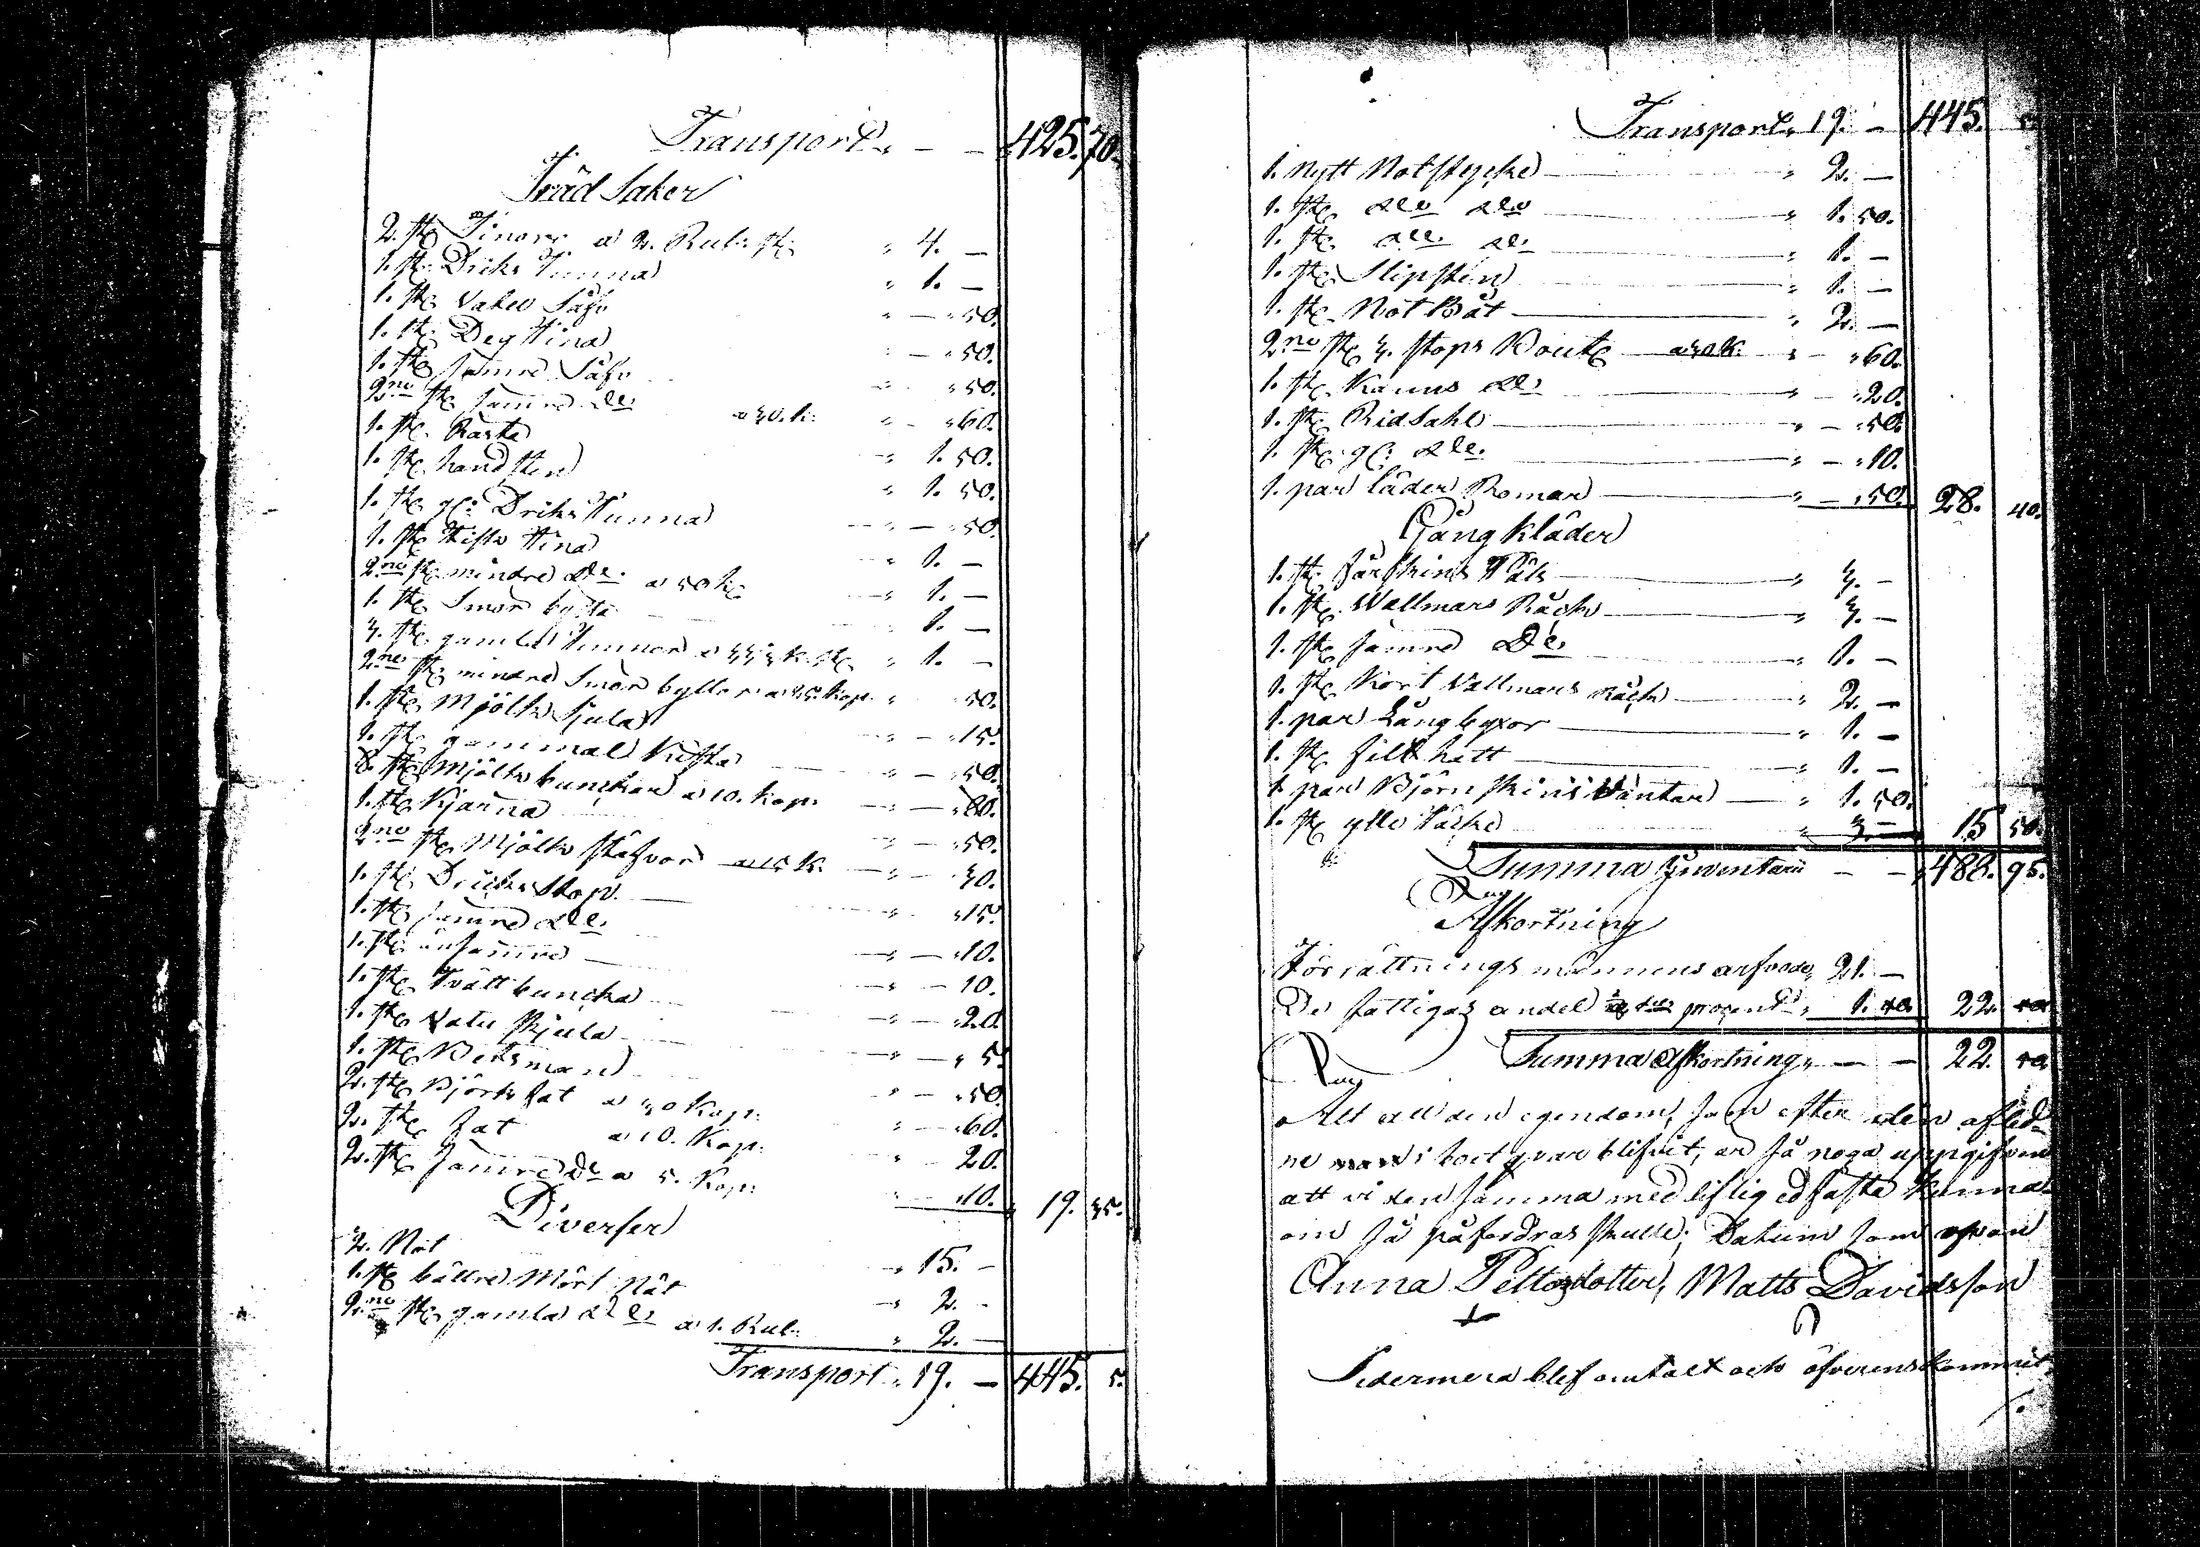 Transport " — — 425. 70.
Träd Saker
2. st. Tinor a 2. Rub: st. " 4. —
1. st. Driks Tunna " 1. —
1. st. Vatu Såfv " — " 50.
1. st. Deg Tina " — " 50.
1. st. sämre Såfv " — " 50.
2.no st. sämre do a 30. k: " — " 60.
1. st. Kärra " 1. 50.
1. st. handsten " 1. 50.
1. st. gl: Driks Tunna " — " 50.
1. st. Tina " 1. —
2.no st. mindre do a 50 k. " 1. —
1. st. Smör bytta " 1. —
3. st. gamla Tunnor a 33⅓ k. st. " 1. —
2.ne st. mindre Smör byttor a 25. kop. " — 50.
1. st. Mjölk skjula " — " 15.
1. st. gammal Kista " — " 50.
8. st. Mjölk bunckar a 10. kop. " — " 80.
1. st. Kjärna " — " 50.
2.no st. Mjölk ståfvor a 15 k. " — " 30.
1. st. Dricks Stop " — " 15.
1. st. sämre do " — " 10.
1. st. än sämre " — 10.
1. st. Tvätt buncka " — " 20.
1. st. Vatu skjula " — " 5.
1. st. Betsman " — " 50.
2. st. Björk fat a 30 kop. " — " 60.
2. st. fat a 10. kop. " — 20.
2. st. sämre do a 5. kop. " — " 10. 19. 35.
Diverser
2. Nöt " 15. —
1. st. bättre Mört Nät " 2. —
2.no st. gamla do a 1. Rub: " 2. —
Transport " 19. — 445. 5.
Transport " 19. — 445. 5.
1. nytt Notstycke " 2. —
1. st. do do " 1. 50.
1. st. do do " 1. —
1. st. Slipsten " 1. —
1. st. Not Båt " 2. —
2.no st. 3. stops Bout. a 30 k. " — " 60.
1. st. Kanns do " — " 20.
1. st. Rid Sahl " — " 50.
1. st. gl: do " — " 10.
1. par läder Romar " — " 50. 28. 40.
Gångkläder
1. st. fårskins Päls " 3. —
1. st. Wallmars Råck " 3. —
1. st. sämre do " 1. —
1. st. Kort Vallmars Råck " 2. —
1. par Långbyxor " 1. —
1. st. filt hatt " 1. —
1 par Björnskins Vantar " 1. 50.
1. st. ylle Täcke " 3. — 15 50.
Summa Inventarii — — " 488. 95.
Afkortning
Förrättnings männens arfvode " 21. —
De fattigas andel procent " 1. 22.
Summa Afkortning " — — 22.
At all den egendom, som efter den afled-
ne man i boet qvar blifvit, är så noga uppgifven
att vi den samma med liflig ed fästa kunna
om så påfordras skulle; Datum som ofvan
Anna Pettersdotter, Matts Davidsson
Sedermera blef omtalt och öfverenskommit